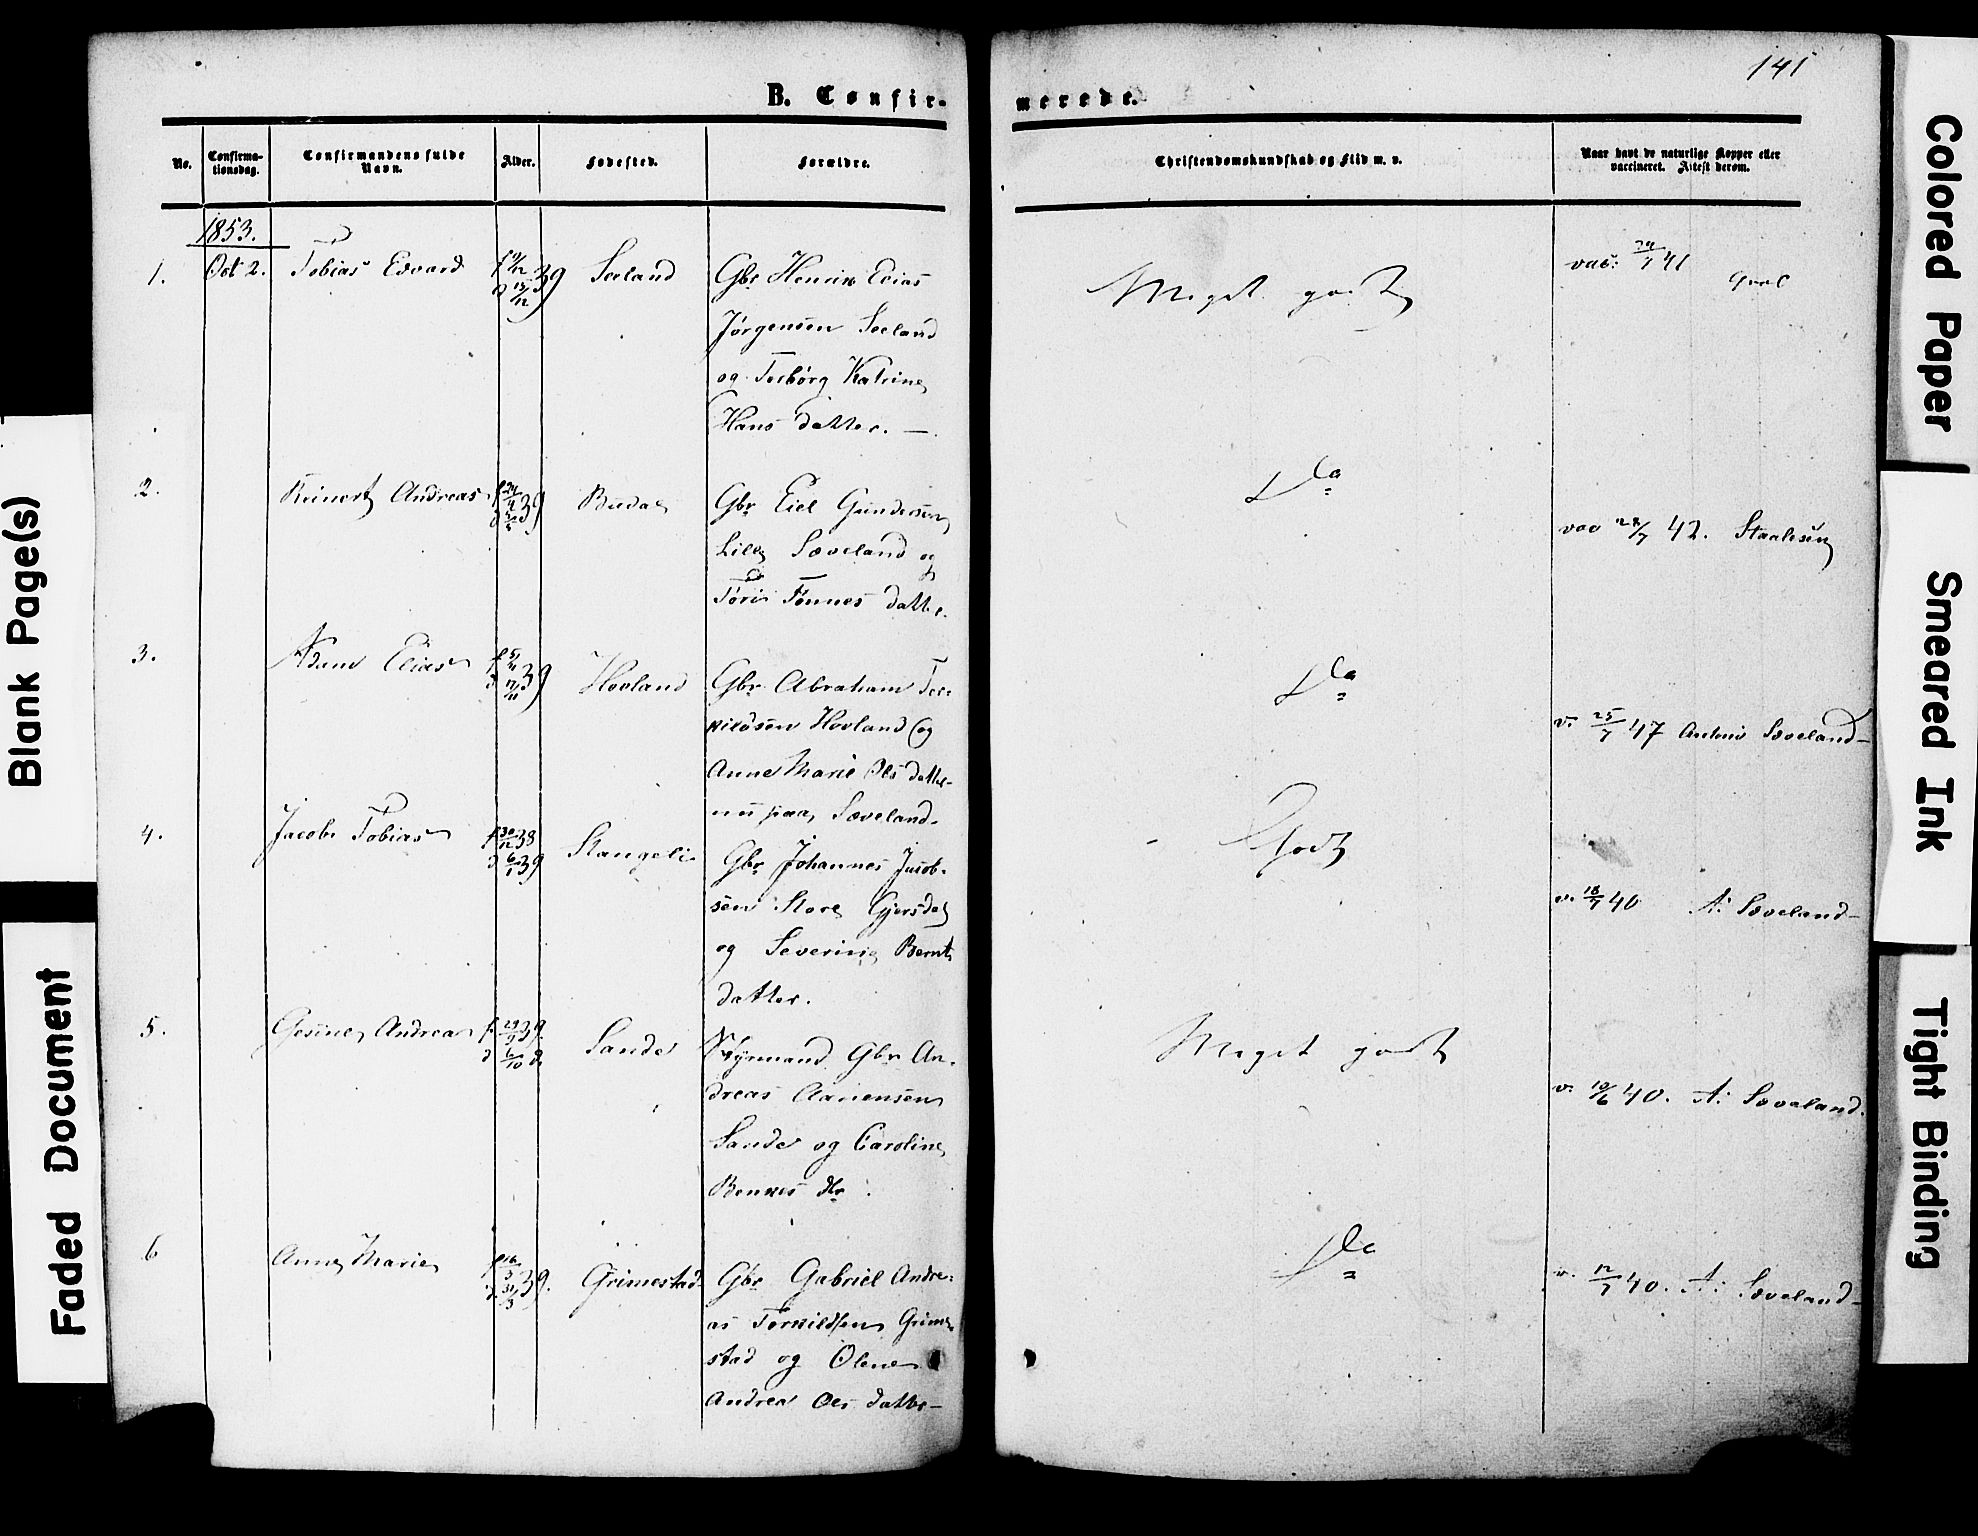 141
B. Confir-
merede.
No.
Confirma-
tionsdag.
Confirmandens fulde
Navn.
Alder.
Fødested.
Forældre.
Christendomskundskab og Flid m. v.
Naar havt de naturlige Kopper eller
vaccineret. Attest derom.
1853.
1. Oct 2. Tobias Edvard
39
Seland
Gbr Henrik Elias
Jørgensen Seeland
og Torbørg Katrine
Hans datter. —
Meget godt
vac: 41
2.
Reinert Andreas
39
Gbr Eiel Gundersen
Lille Sæveland og
Tøri Tønnes datter.
Do
vac 28/7 42. Staalesen
3.
Adam Elias
39
Hovland
Gbr Abraham Ter-
kildsen Hovland og
Anne Marie Ols datter
nu paa Sæveland.
Do
v. 25/7 47 Antoni Sæveland
4.
Jacob Tobias
f 30/12 38
d 6/1 39
Stangeli
Gbr Johannes Jacob-
sen Store Gjersdal
og Severine Bernt
datter.
Godt
v. 18/7 40 A: Sæveland
5.
Gesine Andrea
f. 29/9 39.
d 6/10 d.
Sande
Strømand Gbr An-
dreas Aanensen
Sande og Caroline
Bennes dtr.
Meget godt
v. 10/6 40. A: Sæveland.
6
Anne Marie
f 16/3
d. 31/3 39.
Grimestad
Gbr Gabriel Andre-
as Torkildsen Grime-
stad og Olene
Andrea Ols datter
Do
v. 12/7 40. A: Sæveland
Blank Page(s)
Faded Document
Colored Paper
Smeared Ink
Tight Binding